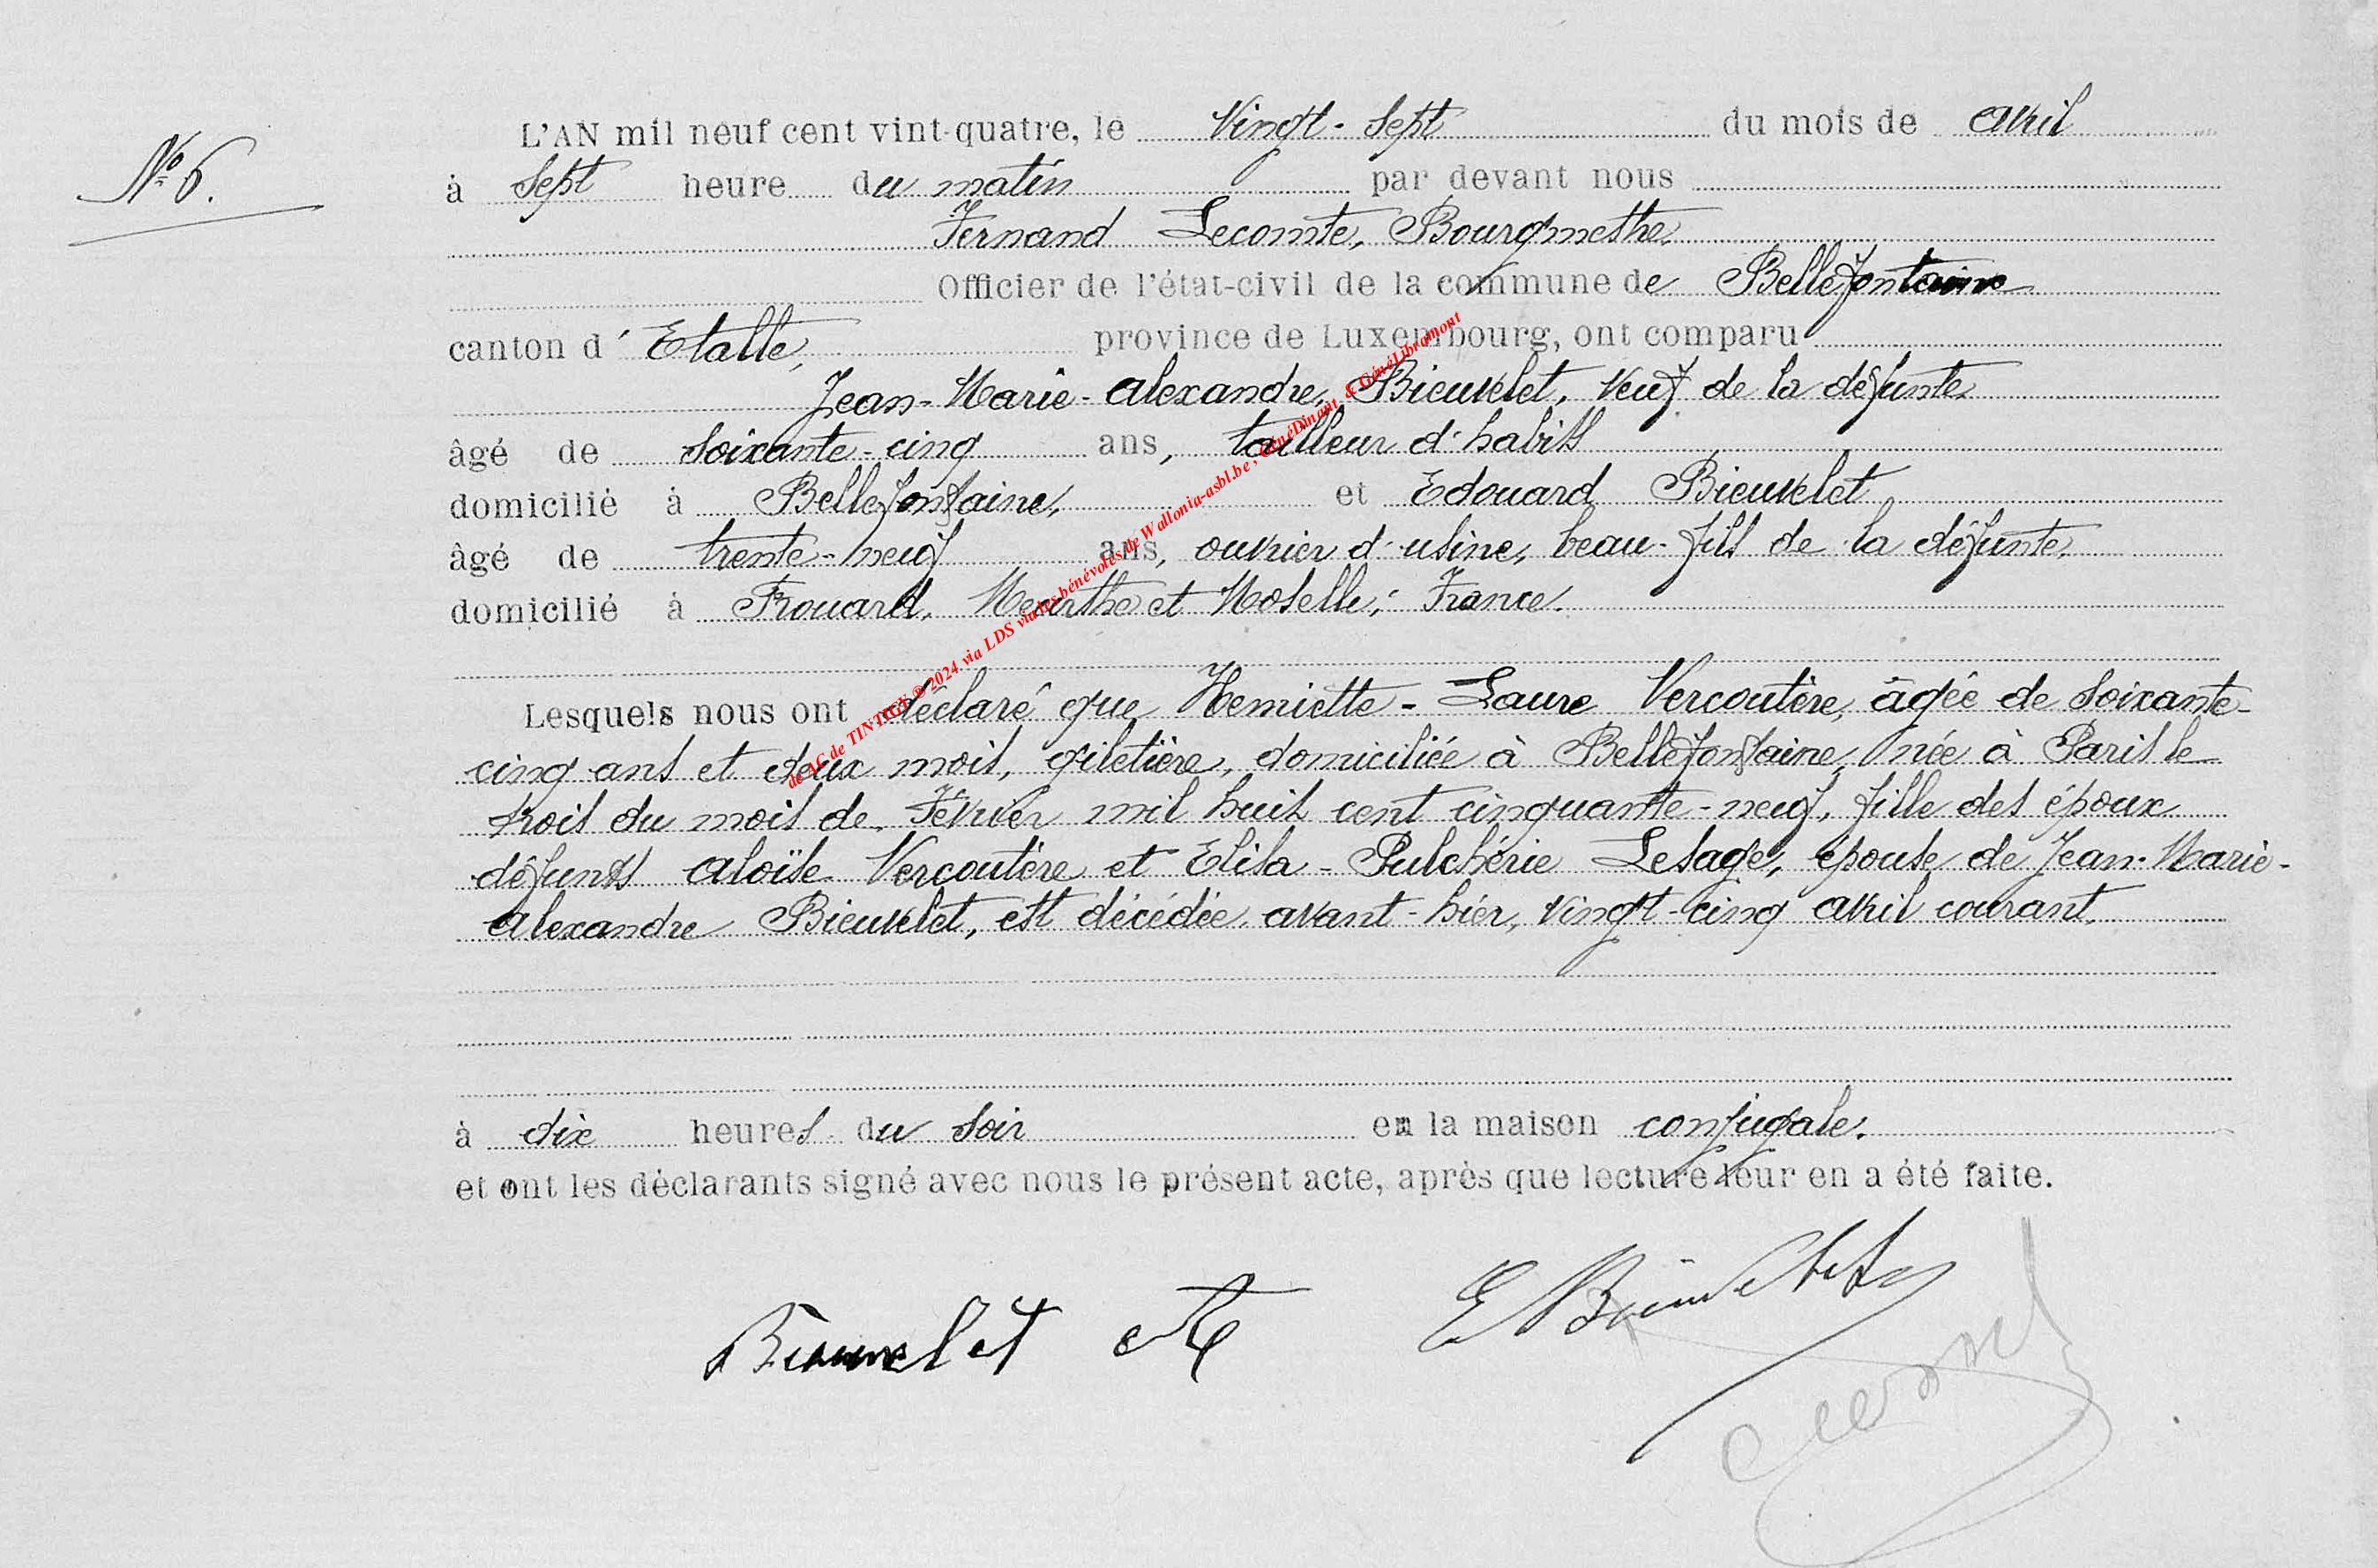 L'AN mil neuf cent vint-quatre, le Vingt-Sept du mois de avril
N° 6.
à Sept heure du matin par devant nous
Fernand Lecomte, Bourgmestre,
Officier de l'état-civil de la commune de Bellefontaine
canton d'Etalle, province de Luxembourg, ont comparu
Jean-Marie-Alexandre Bieuvelet, veuf de la défunte,
âgé de soixante-cinq ans, tailleur d'habits
domicilié à Bellefontaine, et Edouard Bieuvelet,
âgé de trente-neuf ans, ouvrier d'usine, beau-fils de la défunte,
domicilié à Frouard, Meurthe et Moselle, France.
Lesquels nous ont déclaré que Henriette-Laure Vercoutère, âgée de soixante-
cinq ans et deux mois, giletière, domiciliée à Bellefontaine, née à Paris le
trois du mois de Février mil huit cent cinquante-neuf, fille des époux
défunts Aloïse Vercoutère et Elisa-Pulchérie Lesage, épouse de Jean-Marie-
Alexandre Bieuvelet, est décédée avant-hier, vingt-cinq avril courant.
à dix heures du soir en la maison conjugale.
et ont les déclarants signé avec nous le présent acte, après que lecture leur en a été faite.
Bieuvelet E Bieuvelet
de AC de TINTIGNY © 2024 via LDS via les bénévoles de Wallonia-asbl.be, GénéDinant & GénéLibramont